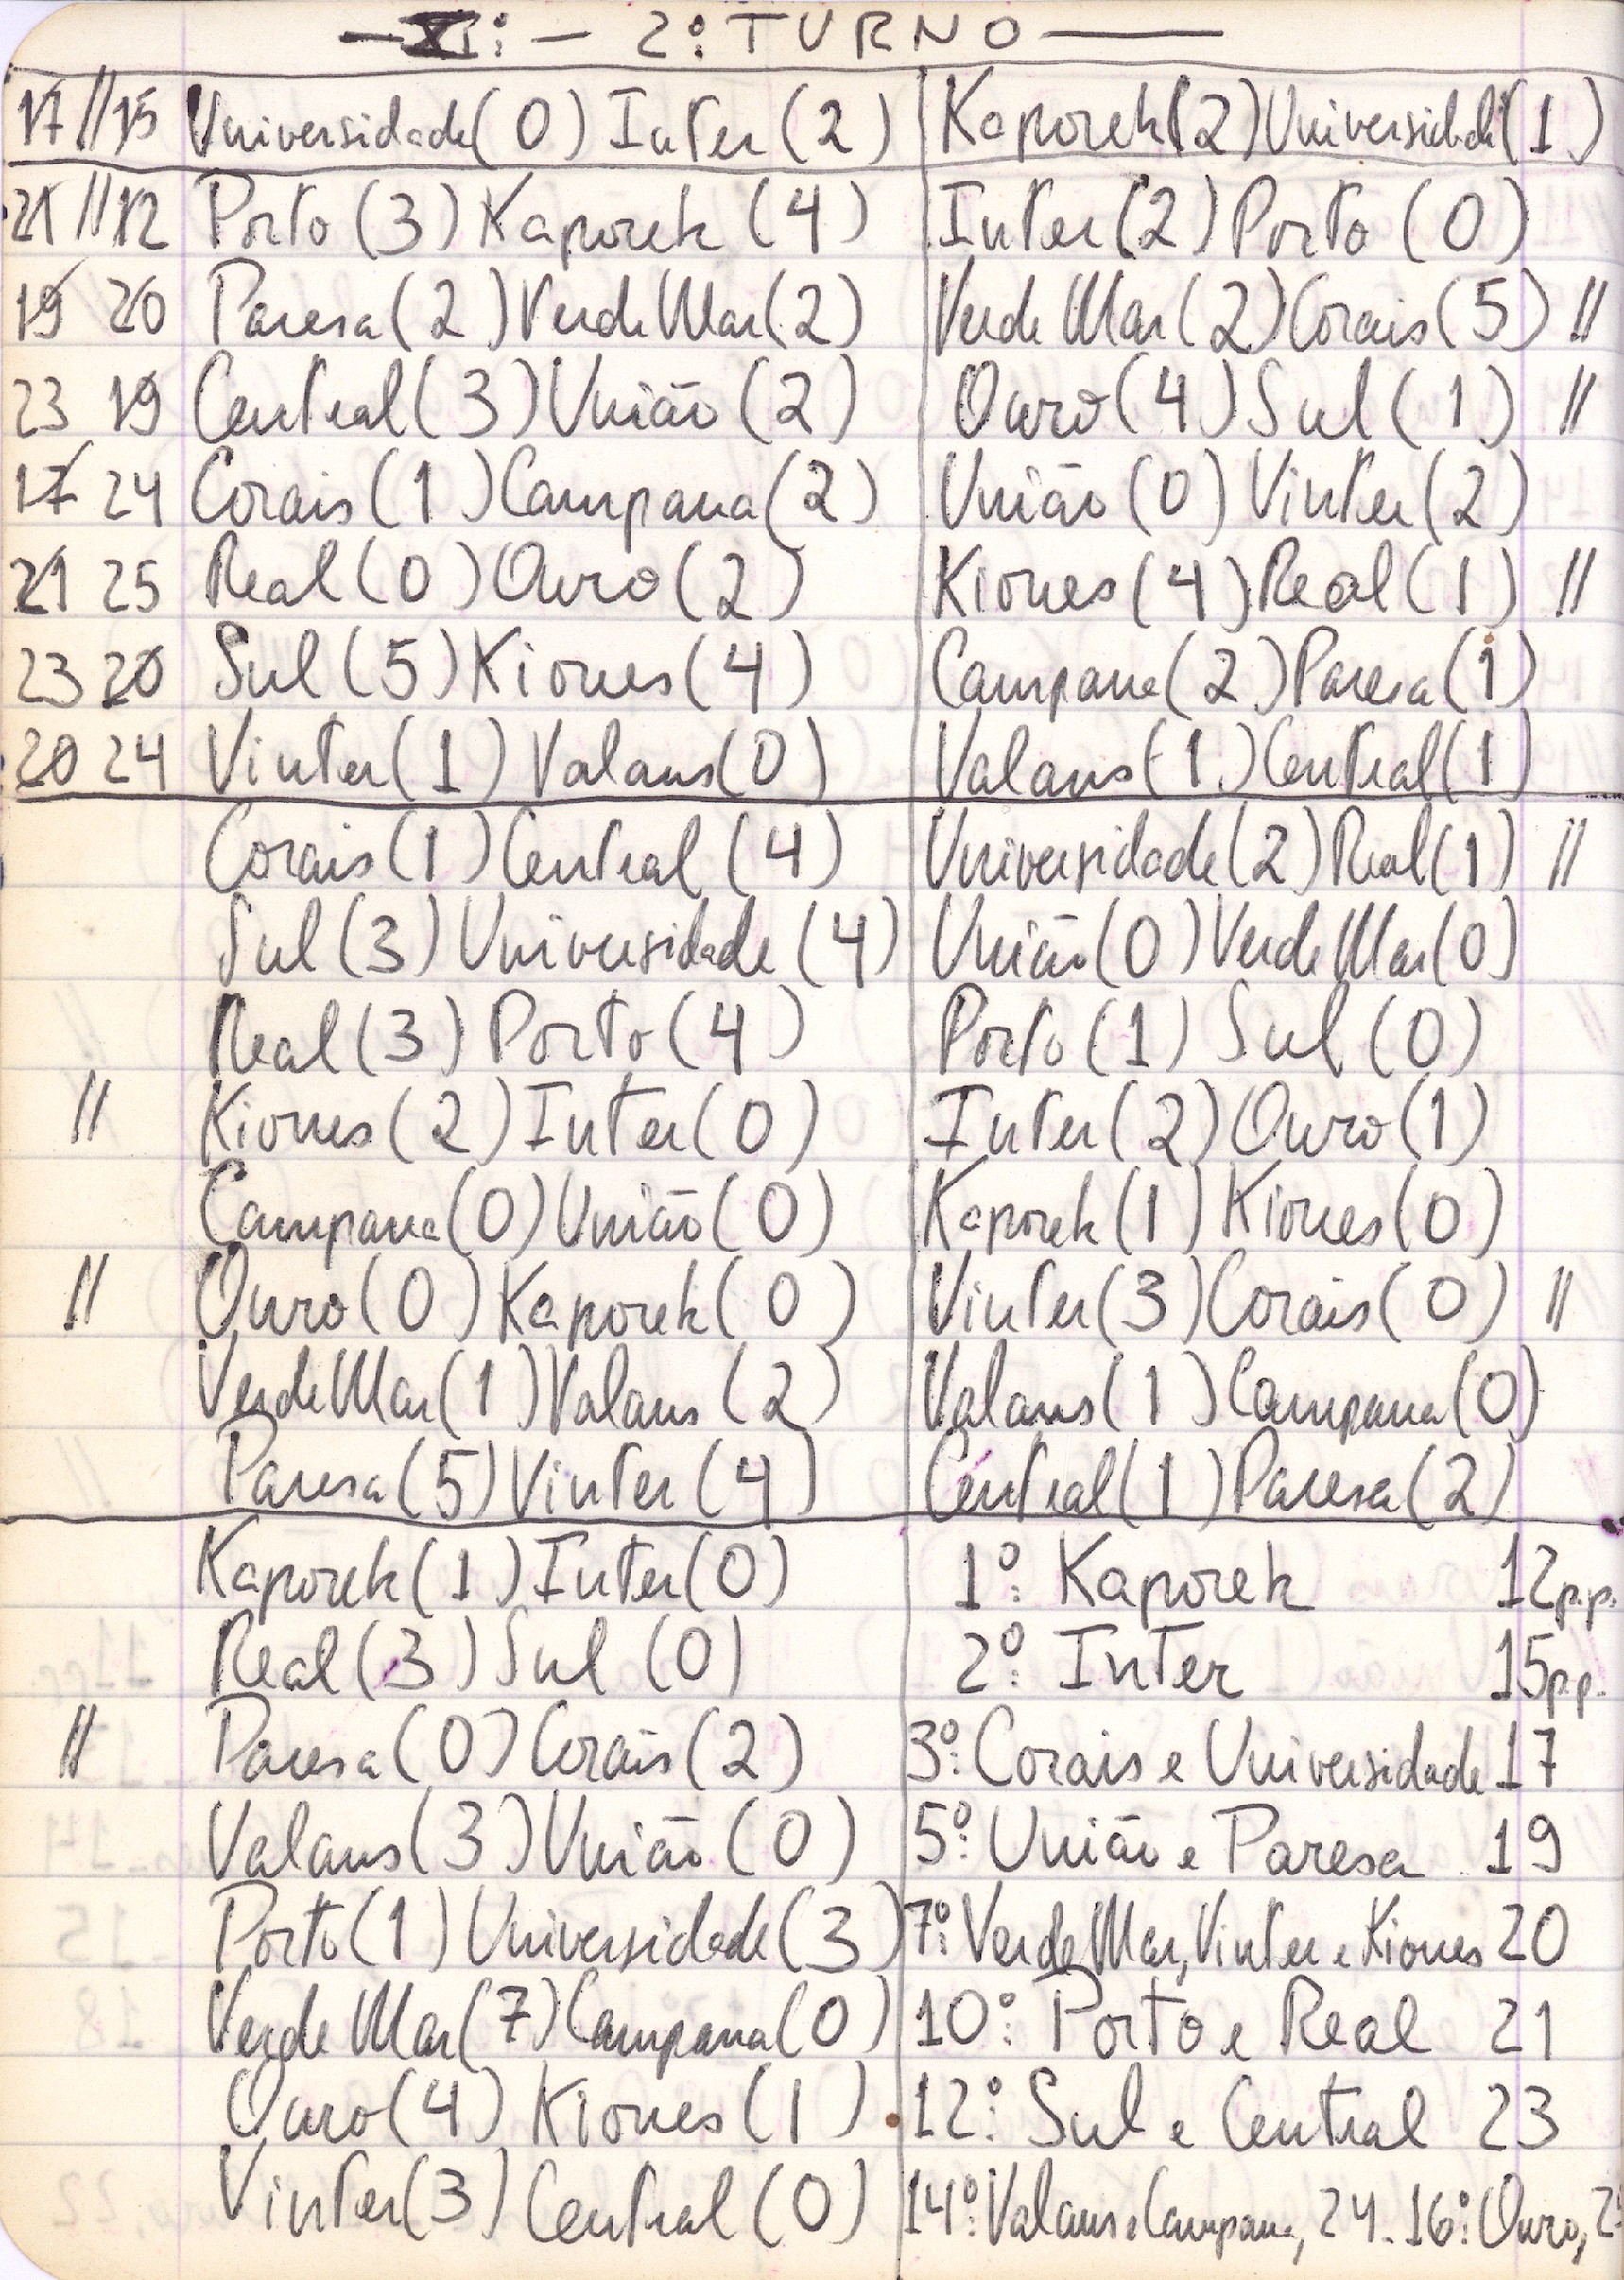 XI: - 2º TURNO
17 // 15 Universidade (0) Inter (2) Kaporek (2) Universidade (1)
21 // 12 Porto (3) Kaporek (4) Inter (2) Porto (0)
19 20 Paresa (2) Verde Mar (2) Verde Mar (2) Corais (5) //
23 19 Central (3) União (2) Ouro (4) Sul (1) //
17 24 Corais (1) Campana (2) União (0) Vinter (2)
21 25 Real (0) Ouro (2) Kiones (4) Real (1) //
23 20 Sul (5) Kiones (4) Campana (2) Paresa (1)
20 24 Vinter (1) Valans (0) Valans (1) Central (1)
Corais (1) Central (4) Universidade (2) Real (1) //
Sul (3) Universidade (4) União (0) Verde Mar (0)
Real (3) Porto (4) Porto (1) Sul (0)
// Kiones (2) Inter (0) Inter (2) Ouro (1)
Campana (0) União (0) Kaporek (1) Kiones (0)
// Ouro (0) Kaporek (0) Vinter (3) Corais (0) //
Verde Mar (1) Valans (2) Valans (1) Campana (0)
Paresa (5) Vinter (4) Central (1) Paresa (2)
Kaporek (1) Inter (0) 1º: Kaporek 12 p.p.
Real (3) Sul (0) 2º: Inter 15 p.p.
// Paresa (0) Corais (2) 3º: Corais e Universidade 17
Valans (3) União (0) 5º: União e Paresa 19
Porto (1) Universidade (3) 7º: Verde Mar, Vinter e Kiones 20
Verde Mar (7) Campana (0) 10º: Porto e Real 21
Ouro (4) Kiones (1) 12º: Sul e Central 23
Vinter (3) Central (0) 14º: Valans e Campana, 24. 16º: Ouro,